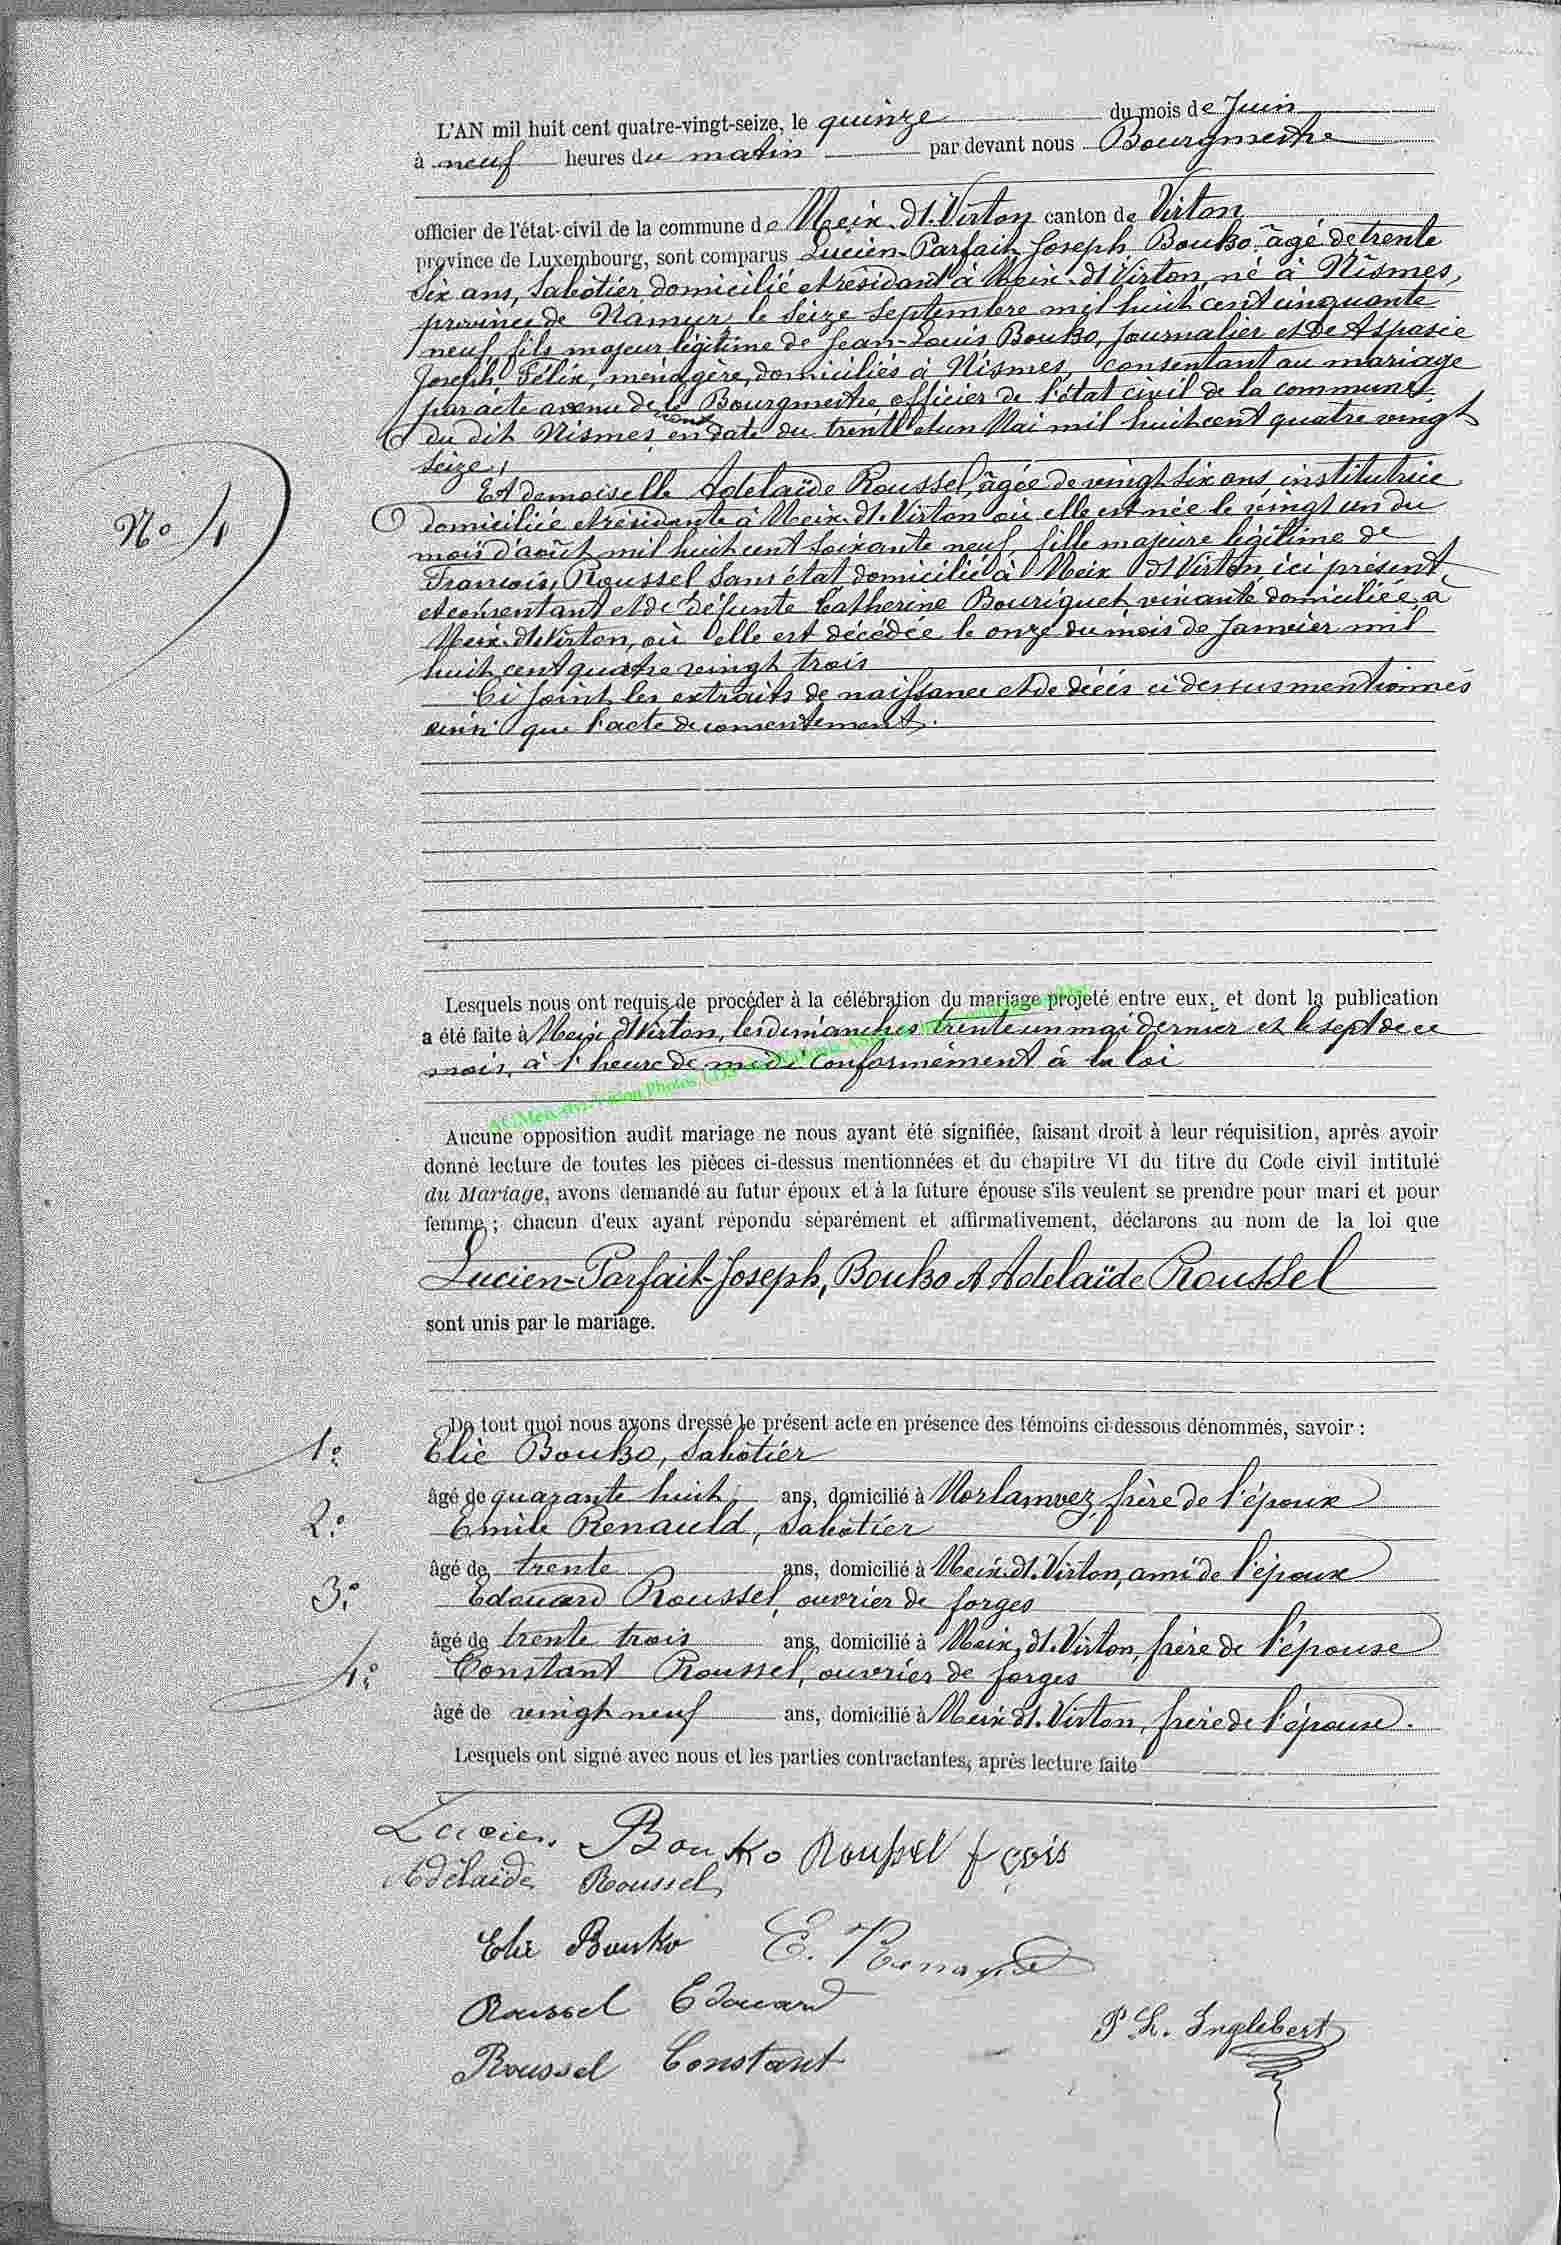 L'AN mil huit cent quatre-vingt-seize, le quinze du mois de Juin
à neuf heures du matin par devant nous Bourgmestre
officier de l'état-civil de la commune de Meix-dt-Virton canton de Virton
province de Luxembourg, sont comparus Lucien-Parfait Joseph Bouko, âgé de trente
six ans, sabôtier domicilié et résidant à Meix-dt-Virton, né à Nismes,
province de Namur, le seize septembre mil huit cent cinquante
neuf, fils majeur légitime de Jean-Louis Bouko, journalier et de Aspasie
Joseph Félix, ménagère, domiciliés à Nismes, consentant au mariage
par acte avenu de le Bourgmestre, officier de l'état civil de la commune
du dit Nismes, en date du trente et un Mai mil huit cent quatre vingt
seize,
Et demoiselle Adelaïde Roussel, âgée de vingt six ans, institutrice
domiciliée et résidante à Meix-dt-Virton où elle est née le vingt un du
mois d'août mil huit cent soixante neuf, fille majeure légitime de
François Roussel sans état domicilié à Meix dt Virton ici présent
et consentant et de défunte Catherine Bouriquet, vivante domiciliée à
Meix-dt-Virton, où elle est décédée le onze du mois de Janvier mil
huit cent quatre vingt trois
Ci joint les extraits de naissance et de décès ci dessus mentionnés
ainsi que l'acte de consentement.
No 4
Lesquels nous ont requis de procéder à la célébration du mariage projeté entre eux, et dont la publication
a été faite à Meix dt Virton, les dimanches trente un mai dernier et le sept de ce
mois, à l'heure de midi conformément à la loi
Aucune opposition audit mariage ne nous ayant été signifiée, faisant droit à leur réquisition, après avoir
donné lecture de toutes les pièces ci-dessus mentionnées et du chapitre VI du titre du Code civil intitulé
du Mariage, avons demandé au futur époux et à la future épouse s'ils veulent se prendre pour mari et pour
femme ; chacun d'eux ayant répondu séparément et affirmativement, déclarons au nom de la loi que
Lucien-Parfait-Joseph, Bouko et Adelaïde Roussel
sont unis par le mariage.
De tout quoi nous avons dressé le présent acte en présence des témoins ci-dessous dénommés, savoir :
1o Elie Bouko, sabotier
âgé de quarante huit ans, domicilié à Morlanwez, frère de l'époux
2o Emile Renauld, sabotier
âgé de trente ans, domicilié à Meix-dt-Virton, ami de l'époux
3o Edouard Roussel, ouvrier de forges
âgé de trente trois ans, domicilié à Meix-dt-Virton, frère de l'épouse
4o Constant Roussel, ouvrier de forges
âgé de vingt neuf ans, domicilié à Meix dt Virton, frère de l'épouse.
Lesquels ont signé avec nous et les parties contractantes, après lecture faite
Lucien Bouko Roussel fçois
Adélaïde Roussel
Elie Bouko E. Renauld
Roussel Edouard
P L. Inglebert
Roussel Constant